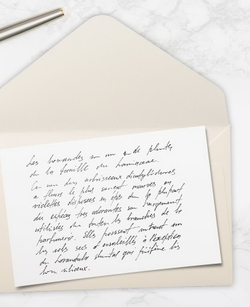 Les lavandes sont un de plantes
de la famille des lamiaceae.
Ce sont des arbrisseaux dicotylédones
à fleurs le plus souvent mauves ou
violettes disposées en épis dont la plupart
des espèces très odorantes sont largement
utilisées dans toutes les branches de la
parfumerie. Elles poussent surtout sur
les sols secs et ensoleillés à l'exception
de lavandula dentata qui préfère les
siliceux.